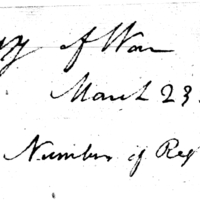 y of War
March 23
Number of Reg